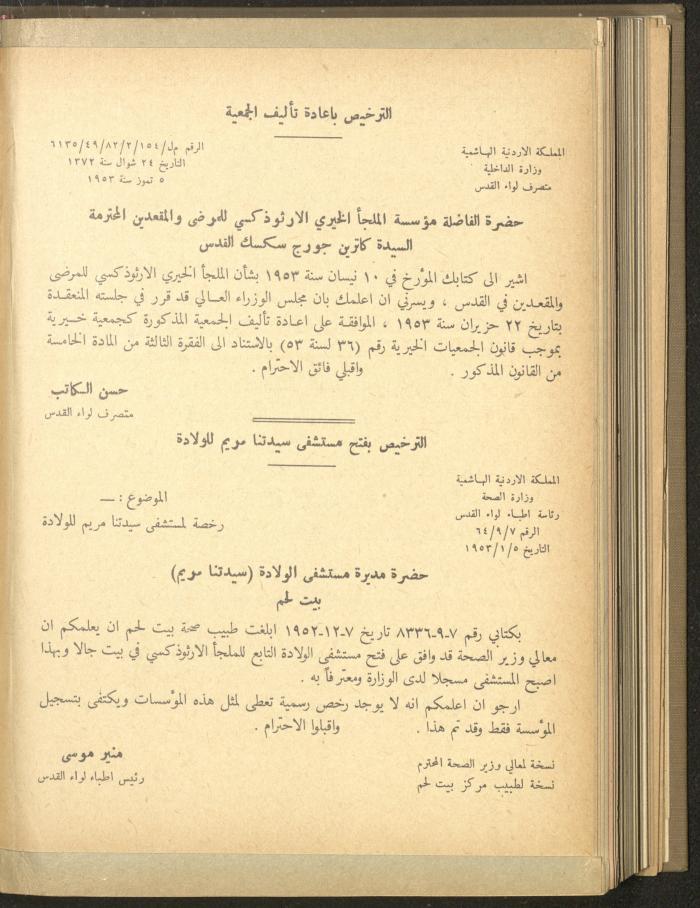 الترخيص باعادة تأليف الجمعية
المملكة الاردنية الهاشمية
وزارة الداخلية
متصرف لواء القدس
الرقم م ل/١٥٤/٢/٨٢/٤٩/٦١٣٥
التاريخ ٢٤ شوال سنة ١٣٧٢
٥ تموز سنة ١٩٥٣
حضرة الفاضلة مؤسسة الملجأ الخيري الارثوذكسي للمرضى والمقعدين المحترمة
السيدة كاترين جورج سكسك القدس
اشير الى كتابك المؤرخ في ١٠ نيسان سنة ١٩٥٣ بشأن الملجأ الخيري الارثوذكسي للمرضى
والمقعدين في القدس ، ويسرني ان اعلمك بان مجلس الوزراء العالي قد قرر في جلسته المنعقدة
بتاريخ ٢٢ حزيران سنة ١٩٥٣ ، الموافقة على اعادة تأليف الجمعية المذكورة كجمعية خيرية
بموجب قانون الجمعيات الخيرية رقم (٣٦ لسنة ٥٣) بالاستناد الى الفقرة الثالثة من المادة الخامسة
من القانون المذكور . واقبلي فائق الاحترام .
حسن الكاتب
متصرف لواء القدس
الترخيص بفتح مستشفى سيدتنا مريم للولادة
المملكة الاردنية الهاشمية
وزارة الصحة
رئاسة اطباء لواء القدس
الرقم ٦٤/٩/٧
التاريخ ١٩٥٣/١/٥
الموضوع : —
رخصة لمستشفى سيدتنا مريم للولادة
حضرة مديرة مستشفى الولادة (سيدتنا مريم)
بيت لحم
بكتابي رقم ٧-٩-٨٣٣٦ تاريخ ٧-١٢-١٩٥٢ ابلغت طبيب صحة بيت لحم ان يعلمكم ان
معالي وزير الصحة قد وافق على فتح مستشفى الولادة التابع للملجأ الارثوذكسي في بيت جالا وبهذا
اصبح المستشفى مسجلا لدى الوزارة ومعترفاً به .
ارجو ان اعلمكم انه لا يوجد رخص رسمية تعطى لمثل هذه المؤسسات ويكتفى بتسجيل
المؤسسة فقط وقد تم هذا . واقبلوا الاحترام .
منير موسى
رئيس اطباء لواء القدس
نسخة لمعالي وزير الصحة المحترم
نسخة لطبيب مركز بيت لحم